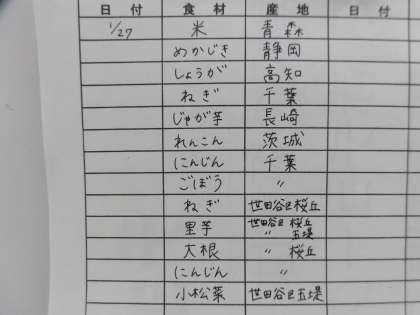 日 付 食 材 産 地 日 付
1/27 米 青森
めかじき 静岡
しょうが 高知
ねぎ 千葉
じゃが芋 長崎
れんこん 茨城
にんじん 千葉
ごぼう 〃
ねぎ 世田谷区桜丘
里芋 世田谷区 桜丘
〃 玉堤
大根 〃 桜丘
にんじん 〃
小松菜 世田谷区玉堤